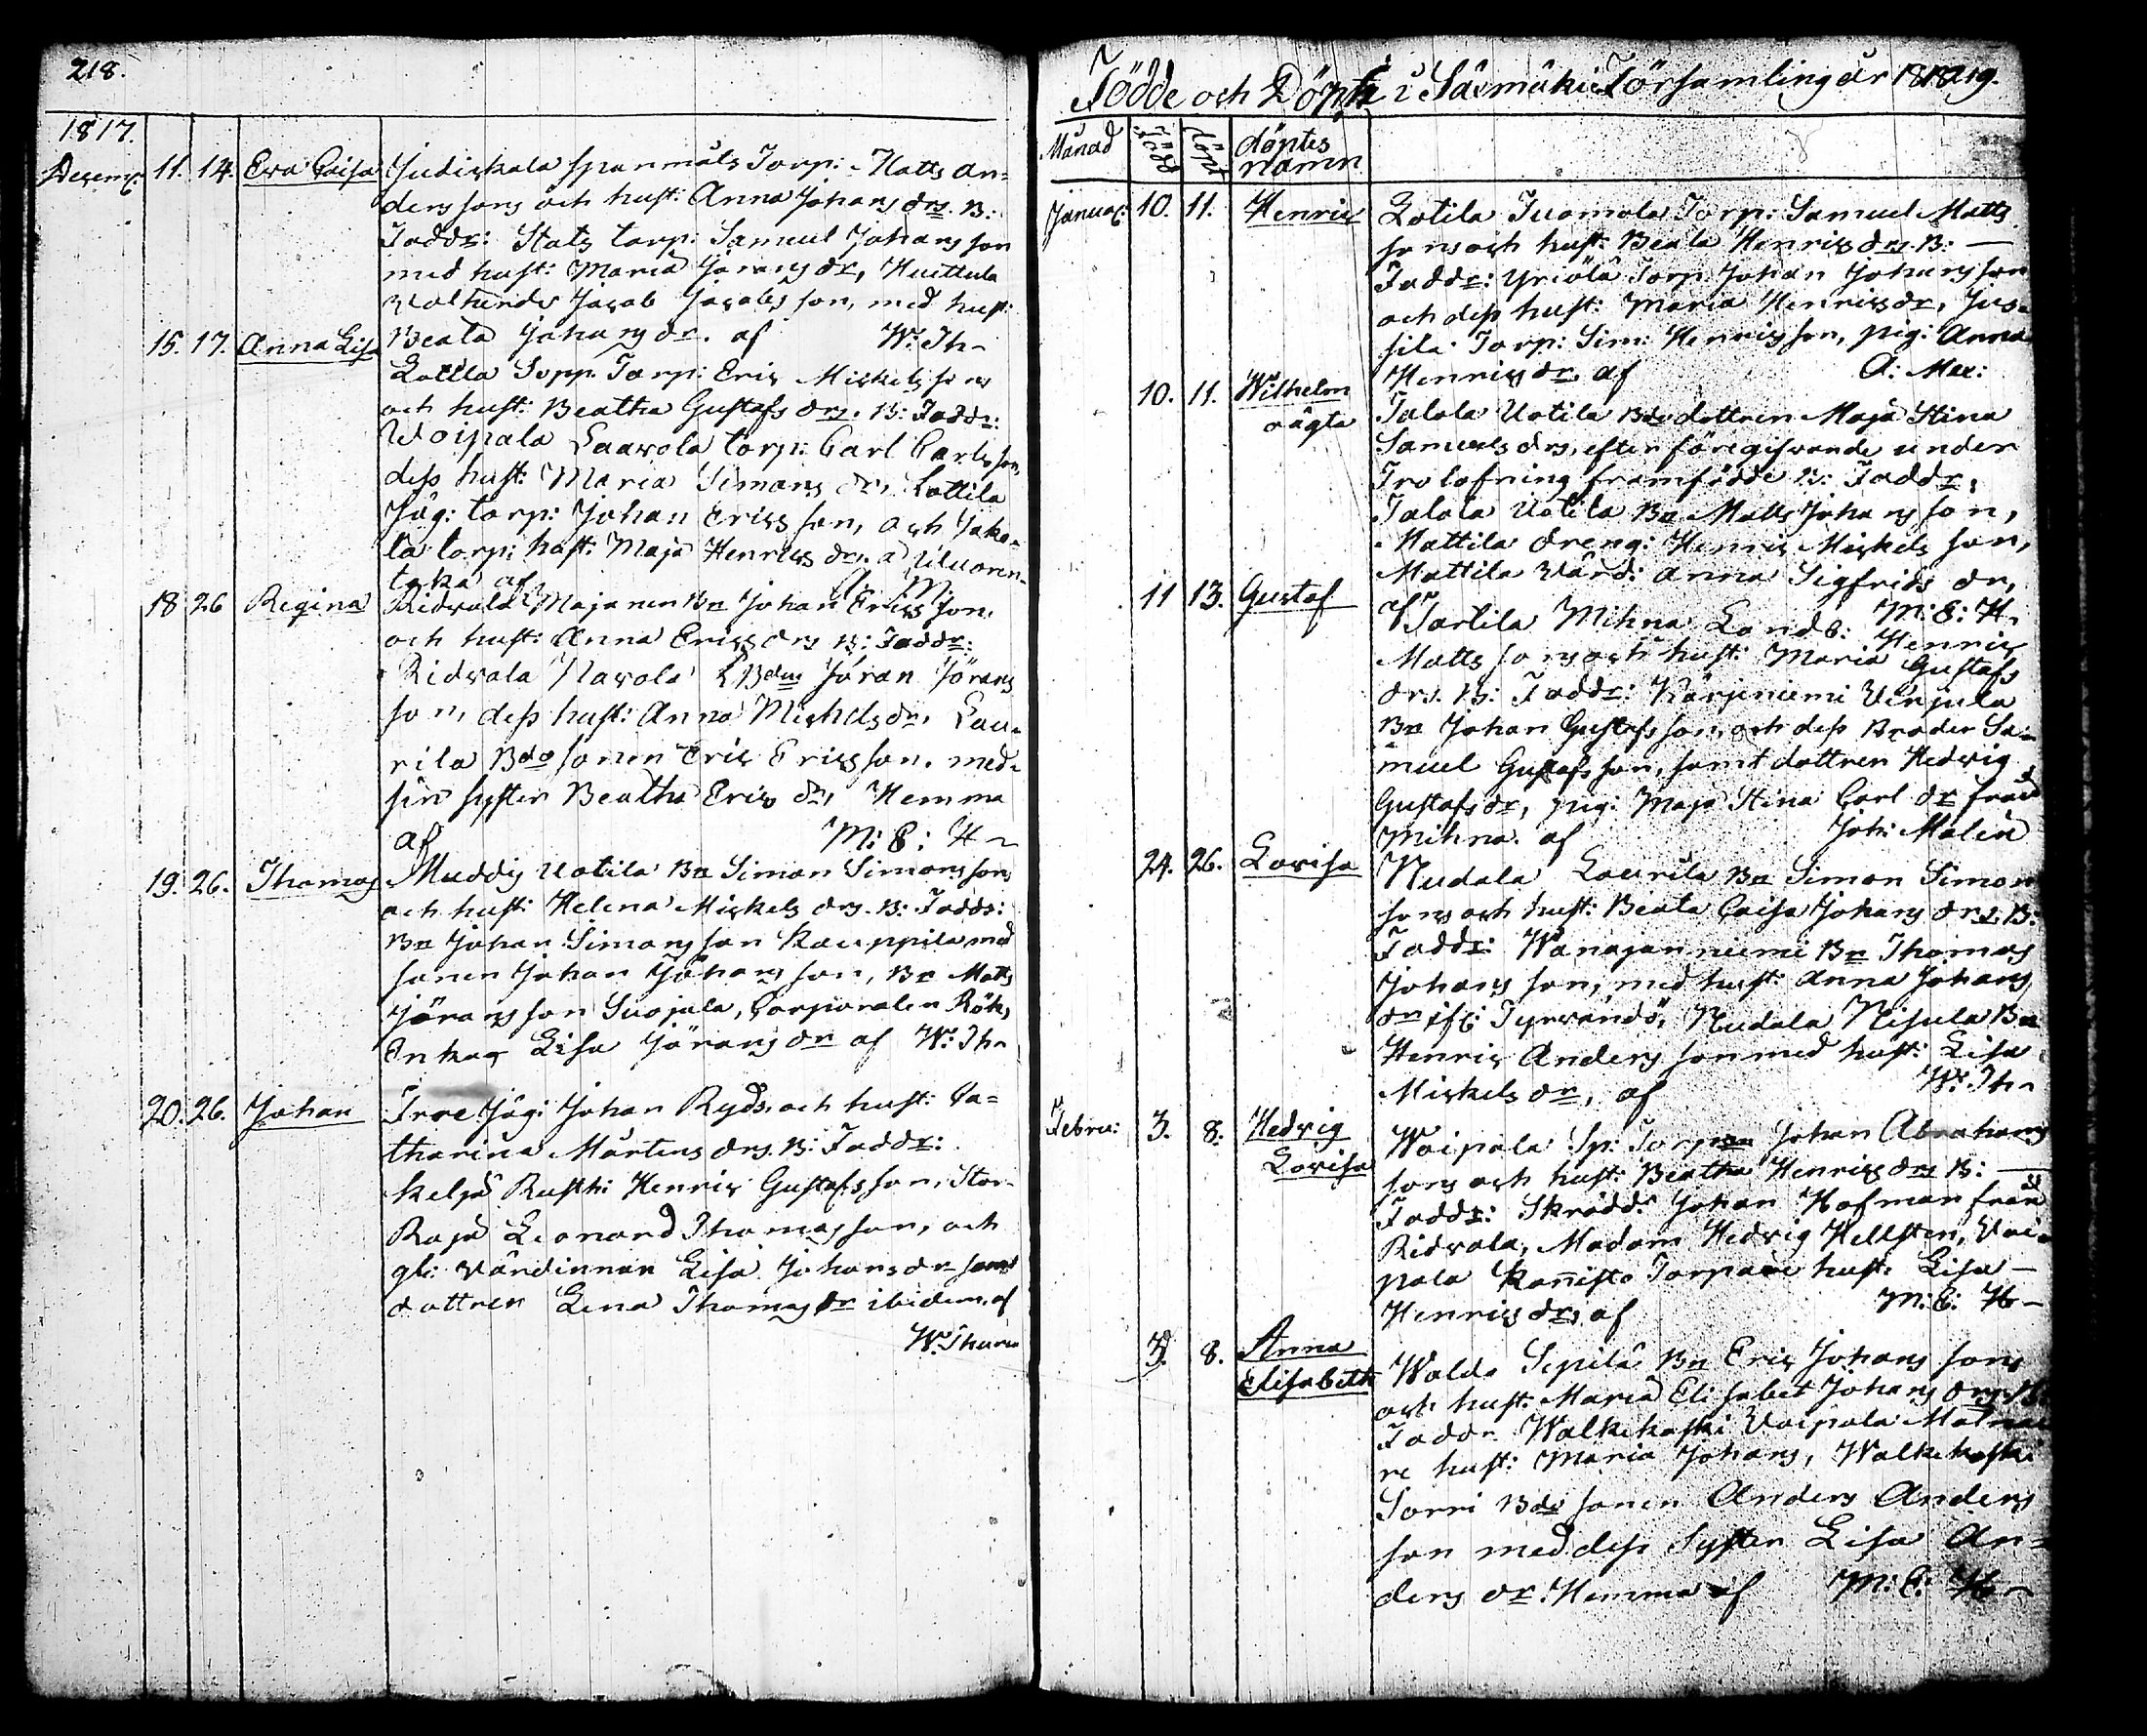 218.
1817.
Decemb: 11. 14. Eva Caisa Judickala Spanmåls Torp: Matts An=
derssons och hust: Anna Johansdrs. B:
Faddr: Stats torp: Samuel Johansson
med hust: Maria Jöransdr, Huittula
Jacob Jacobsson, med hust:
Beata Johansdr. af W: Th-
15. 17. Anna Lisa Lotila Sopp. Torp: Eric Mickelssons
och hust: Beatha Gustafsdrs. B: Faddr:
Woipala Laavola torp: Carl Carlsson,
dess hust: Maria Simonsdr, Lottila
Jäg: torp: Johan Ericsson, och Jako-
la torp: hust: Maja Henricsdr. a Uluoren-
taka af M:
18 26 Regina Ridvala Majanen Bn Johan Ericsson,
och hust: Anna Ericsdrs B: Faddr:
Ridvala Navola Bdn Jöran Jörans
son, dess hust: Anna Mickelsdr, Lau-
rila Bdo sonen Eric Ericsson. med-
sin syster Beatha Ericsdr, Hemma
af M: E: H-
19. 26. Thomas Muddis Uotila Bn Simon Simonssons
och hust: Helena Mickelsdrs. B: Faddr:
Bn Johan Simonsson Kauppila med
sonen Johan Johansson, Bn Matts
Jöransson Suojala, Corporalen Röks
Enka Lisa Jöransdr af W: Th-
20. 26. Johan Jäg: Johan Ryds och hust: Ca=
tharina Mårtensdrs. B: Faddr:
Keljä Rusth: Henric Gustafsson, Stor-
Raja Leonard Thomasson, och
gl: Värdinnan Lisa Johansdr samt
dottren Lena Thomasdr ibidem, af
W. Thuren
Födde och Döpte i Sääxmäki Församling år 1818. 219.
Månad födde döpt döptes
namn
Januar: 10. 11. Henric Lotila Tuomola Torp: Samuel Matts
sons och hust: Beata Henricsdrs. B: —
Faddr: Yriölä Torp Johan Johansson
och dess hust: Maria Henricsdr, Jus-
sila Torp: Sim: Henricsson, pig: Anna
Henricsdr af A: Mer:
10. 11. Wilhelm Jalola Uotila Bdo dottren Maja Stina
oägta Samuelsdrs, efter föregifvande under
Trolofning framfödde B: Faddr,
Jalola Uotila Bn Matts Johansson,
Mattila dreng: Henric Mickelsson,
Mattila Värd: Anna Sigfridsdr,
af M: E: H-
11 13. Gustaf Tarttila Mihna Landb: Henric
Mattssons och hust: Maria Gustafs
drs. B: Faddr: Kärjeniemi Uenjula
Bn Johan Gustafsson, och dess Broder Sa-
muel Gustafsson, samt dottren Hedvig
Gustafsdr, pig: Maja Stina Carlsdr från
Mihna. af Joh: Malin
24. 26. Lovisa Nudala Laurila Bn Simon Simon
sons och hust: Beata Caisa Johansdrs B:
Faddr: Wanajanniemi Bn Thomas
Johansson, med hust: Anna Johans
dr if: Tyrvändö, Nudala Nisula Bn
Henric Andersson med hust: Lisa
Mickelsdr, af W: Th-
Febru: 3. 8. Hedvig Woipala Sp: Torparen Johan Abrahams
Lovisa sons och hust: Beatha Henricsdrs B: —
Faddr: Skrädd: Johan Hofman från
Ridvala, Madam Hedvig Hellsten, Voi-
pala Kannisto Torpare hust: Lisa —
Henricsdr, af M: E: H-
3. 8. Anna Waldo Sepilä Bn Eric Johanssons
Elisabeth och hust: Maria Elisabet Johansdrs. B:
Faddr Walkekoski Voipala Målna
re hust: Maria Johans, Walkekoski
Sorri Bdo sonen Anders Anders
son med dess Syster Lisa An=
dersdr: Hemma af M: E: H-